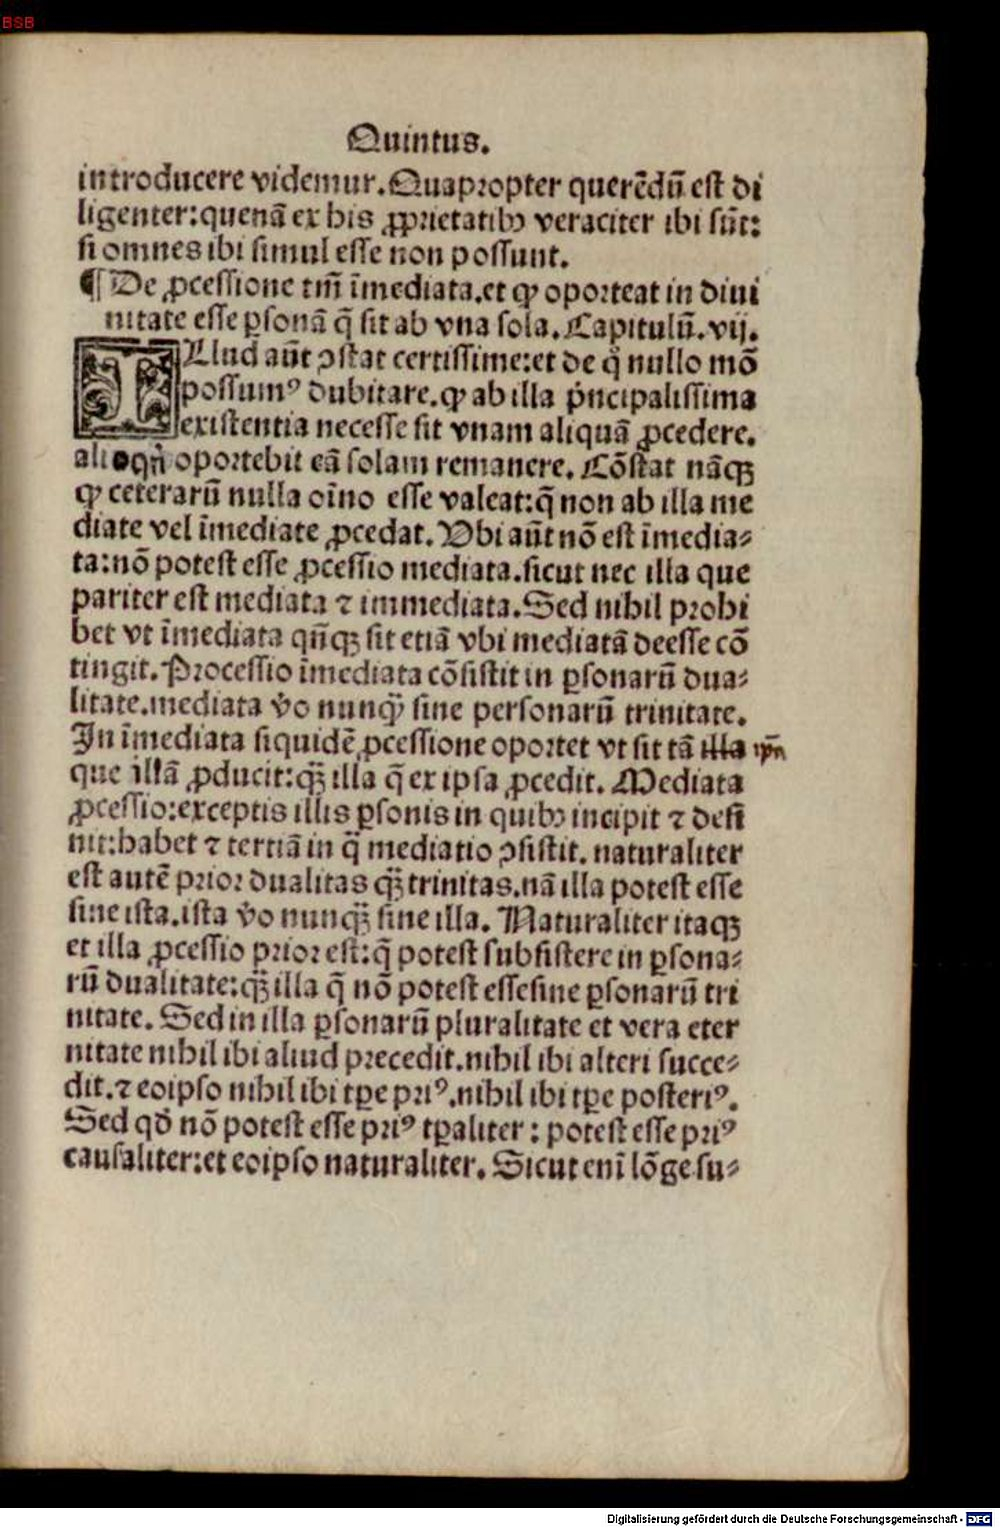 BSB
Quintus.
introducere videmur. Quapropter querēdū est di
ligenter:quenā ex his ꝓprietatibꝰ veraciter ibi sūt:
si omnes ibi simul esse non possunt.
¶ De ꝓcessione tm̄ īmediata.et ꝙ oporteat in diui
nitate esse ꝑsonā q̄ sit ab vna sola. Capitulū. vij.
ILlud aūt ꝯstat certissime:et de q̊ nullo mō
possumꝰ dubitare.ꝙ ab illa pͥncipalissima
existentia necesse sit vnam aliquā ꝓcedere.
alioqn̄ oportebit eā solam remanere. Cōstat nāqꝫ
ꝙ ceterarū nulla oīno esse valeat:q̄ non ab illa me
diate vel īmediate ꝓcedat. Vbi aūt nō est īmedia⸗
ta:nō potest esse ꝓcessio mediata.sicut nec illa que
pariter est mediata ⁊ immediata. Sed nihil prohi
bet vt īmediata qn̄qꝫ sit etiā vbi mediatā deesse cō
tingit. Processio īmediata cōsistit in ꝑsonarū dua⸗
litate.mediata v̊o nunqͣꝫ sine personarū trinitate.
In īmediata siquidē ꝓcessione oportet vt sit tā illa ipā
que illā ꝓducit:qͣꝫ illa q̄ ex ipsa ꝓcedit. Mediata
ꝓcessio:exceptis illis ꝑsonis in quibꝰ incipit ⁊ desi
nit:habet ⁊ tertiā in qͣ mediatio ꝯsistit. naturaliter
est autē prior dualitas qͣꝫ trinitas.nā illa potest esse
sine ista.ista v̊o nunqͣꝫ sine illa. Naturaliter itaqꝫ
et illa ꝓcessio prior est:q̄ potest subsistere in ꝑsona⸗
rū dualitate:qͣꝫ illa q̄ nō potest esse sine ꝑsonarū tri
nitate. Sed in illa ꝑsonarū pluralitate et vera eter
nitate nihil ibi aliud precedit.nihil ibi alteri succe⸗
dit.⁊ eoipso nihil ibi tꝑe priꝰ.nihil ibi tꝑe posteriꝰ.
Sed qd̄ nō potest esse priꝰ tꝑaliter : potest esse priꝰ
causaliter:et eoipso naturaliter. Sicut enī lōge su⸗
Digitalisierung gefördert durch die Deutsche Forschungsgemeinschaft - DFG